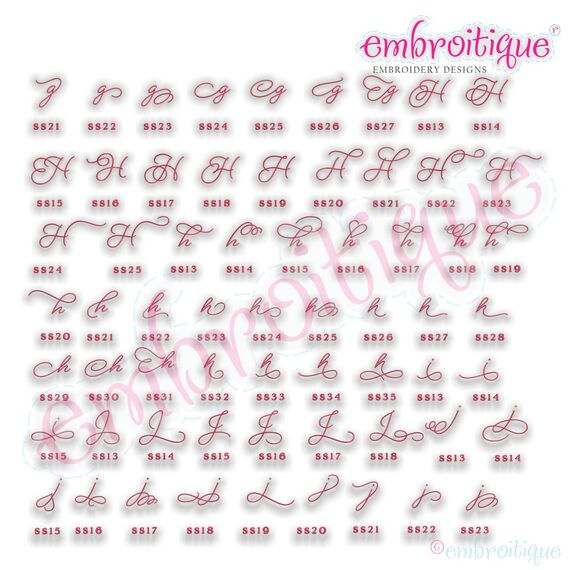 embroitique
EMBROIDERY DESIGNS
g g g g g g g H H
SS21 SS22 SS23 SS24 SS25 SS26 SS27 SS13 SS14
H H H H H H H H H
SS15 SS16 SS17 SS18 SS19 SS20 SS21 SS22 SS23
H H h h h h h h h
SS24 SS25 SS13 SS14 SS15 SS16 SS17 SS18 SS19
h h h h h h h h h
SS20 SS21 SS22 SS23 SS24 SS25 SS26 SS27 SS28
h h h h h h h i i
SS29 SS30 SS31 SS32 SS33 SS34 SS35 SS13 SS14
SS15 SS13 SS14 SS15 SS16 SS17 SS18 SS13 SS14
SS15 SS16 SS17 SS18 SS19 SS20 SS21 SS22 SS23
embroitique
©embroitique